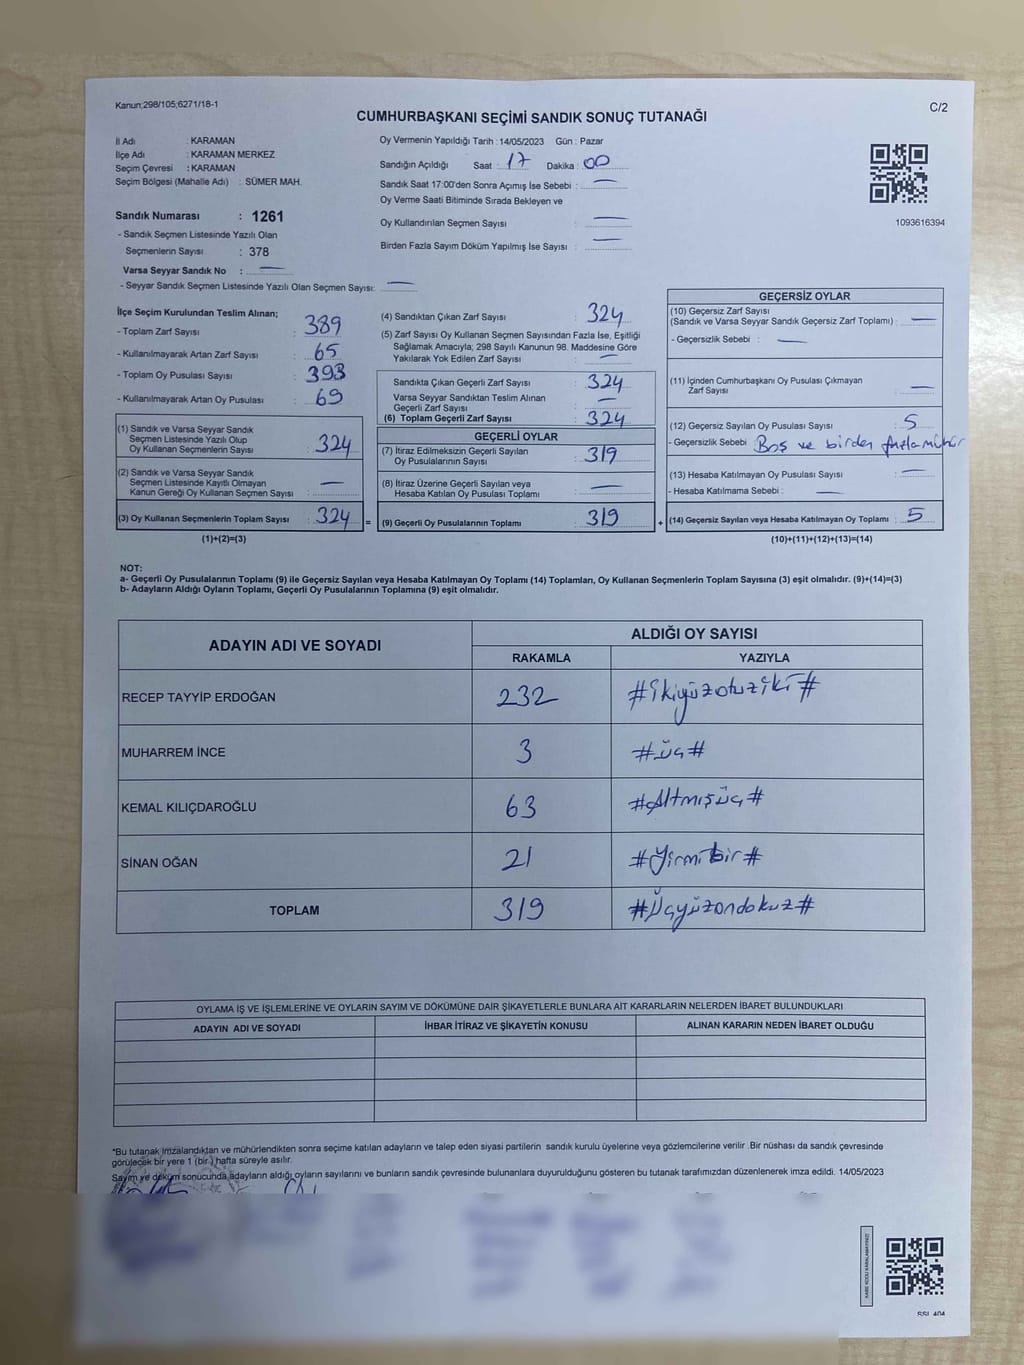 Kanun;298/105;6271/18-1
C/2
CUMHURBAŞKANI SEÇİMİ SANDIK SONUÇ TUTANAĞI
İl Adı : KARAMAN
İlçe Adı : KARAMAN MERKEZ
Seçim Çevresi : KARAMAN
Seçim Bölgesi (Mahalle Adı) : SÜMER MAH.
Sandık Numarası : 1261
- Sandık Seçmen Listesinde Yazılı Olan
Seçmenlerin Sayısı : 378
Varsa Seyyar Sandık No : —
- Seyyar Sandık Seçmen Listesinde Yazılı Olan Seçmen Sayısı: —
Oy Vermenin Yapıldığı Tarih : 14/05/2023 Gün : Pazar
Sandığın Açıldığı Saat : 17 Dakika : 00
Sandık Saat 17:00'den Sonra Açımış İse Sebebi : —
Oy Verme Saati Bitiminde Sırada Bekleyen ve
Oy Kullandırılan Seçmen Sayısı : —
Birden Fazla Sayım Döküm Yapılmış İse Sayısı : —
1093616394
İlçe Seçim Kurulundan Teslim Alınan;
- Toplam Zarf Sayısı : 389
- Kullanılmayarak Artan Zarf Sayısı : 65
- Toplam Oy Pusulası Sayısı : 393
- Kullanılmayarak Artan Oy Pusulası : 69
(1) Sandık ve Varsa Seyyar Sandık
Seçmen Listesinde Yazılı Olup
Oy Kullanan Seçmenlerin Sayısı : 324
(2) Sandık ve Varsa Seyyar Sandık
Seçmen Listesinde Kayıtlı Olmayan
Kanun Gereği Oy Kullanan Seçmen Sayısı : —
(3) Oy Kullanan Seçmenlerin Toplam Sayısı : 324 =
(1)+(2)=(3)
(4) Sandıktan Çıkan Zarf Sayısı : 324
(5) Zarf Sayısı Oy Kullanan Seçmen Sayısından Fazla İse, Eşitliği
Sağlamak Amacıyla; 298 Sayılı Kanunun 98. Maddesine Göre
Yakılarak Yok Edilen Zarf Sayısı : —
Sandıkta Çıkan Geçerli Zarf Sayısı : 324
Varsa Seyyar Sandıktan Teslim Alınan
Geçerli Zarf Sayısı : —
(6) Toplam Geçerli Zarf Sayısı : 324
GEÇERLİ OYLAR
(7) İtiraz Edilmeksizin Geçerli Sayılan
Oy Pusulalarının Sayısı : 319
(8) İtiraz Üzerine Geçerli Sayılan veya
Hesaba Katılan Oy Pusulası Toplamı : —
(9) Geçerli Oy Pusulalarının Toplamı : 319 +
GEÇERSİZ OYLAR
(10) Geçersiz Zarf Sayısı
(Sandık ve Varsa Seyyar Sandık Geçersiz Zarf Toplamı) : —
- Geçersizlik Sebebi : —
(11) İçinden Cumhurbaşkanı Oy Pusulası Çıkmayan
Zarf Sayısı : —
(12) Geçersiz Sayılan Oy Pusulası Sayısı : 5
- Geçersizlik Sebebi : Boş ve birden fazla mühür
(13) Hesaba Katılmayan Oy Pusulası Sayısı : —
- Hesaba Katılmama Sebebi : —
(14) Geçersiz Sayılan veya Hesaba Katılmayan Oy Toplamı : 5
(10)+(11)+(12)+(13)=(14)
NOT:
a- Geçerli Oy Pusulalarının Toplamı (9) ile Geçersiz Sayılan veya Hesaba Katılmayan Oy Toplamı (14) Toplamları, Oy Kullanan Seçmenlerin Toplam Sayısına (3) eşit olmalıdır. (9)+(14)=(3)
b- Adayların Aldığı Oyların Toplamı, Geçerli Oy Pusulalarının Toplamına (9) eşit olmalıdır.
ADAYIN ADI VE SOYADI
ALDIĞI OY SAYISI
RAKAMLA YAZIYLA
RECEP TAYYİP ERDOĞAN 232 #İkiyüzotuziki#
MUHARREM İNCE 3 #Üç#
KEMAL KILIÇDAROĞLU 63 #Altmışüç#
SİNAN OĞAN 21 #Yirmibir#
TOPLAM 319 #Üçyüzondokuz#
OYLAMA İŞ VE İŞLEMLERİNE VE OYLARIN SAYIM VE DÖKÜMÜNE DAİR ŞİKAYETLERLE BUNLARA AİT KARARLARIN NELERDEN İBARET BULUNDUKLARI
ADAYIN ADI VE SOYADI İHBAR İTİRAZ VE ŞİKAYETİN KONUSU ALINAN KARARIN NEDEN İBARET OLDUĞU
*Bu tutanak imzalandıktan ve mühürlendikten sonra seçime katılan adayların ve talep eden siyasi partilerin sandık kurulu üyelerine veya gözlemcilerine verilir .Bir nüshası da sandık çevresinde
görülecek bir yere 1 (bir ) hafta süreyle asılır.
Sayım ve döküm sonucunda adayların aldığı oyların sayılarını ve bunların sandık çevresinde bulunanlara duyurulduğunu gösteren bu tutanak tarafımızdan düzenlenerek imza edildi. 14/05/2023
KARE KODU KARALAMAYINIZ!